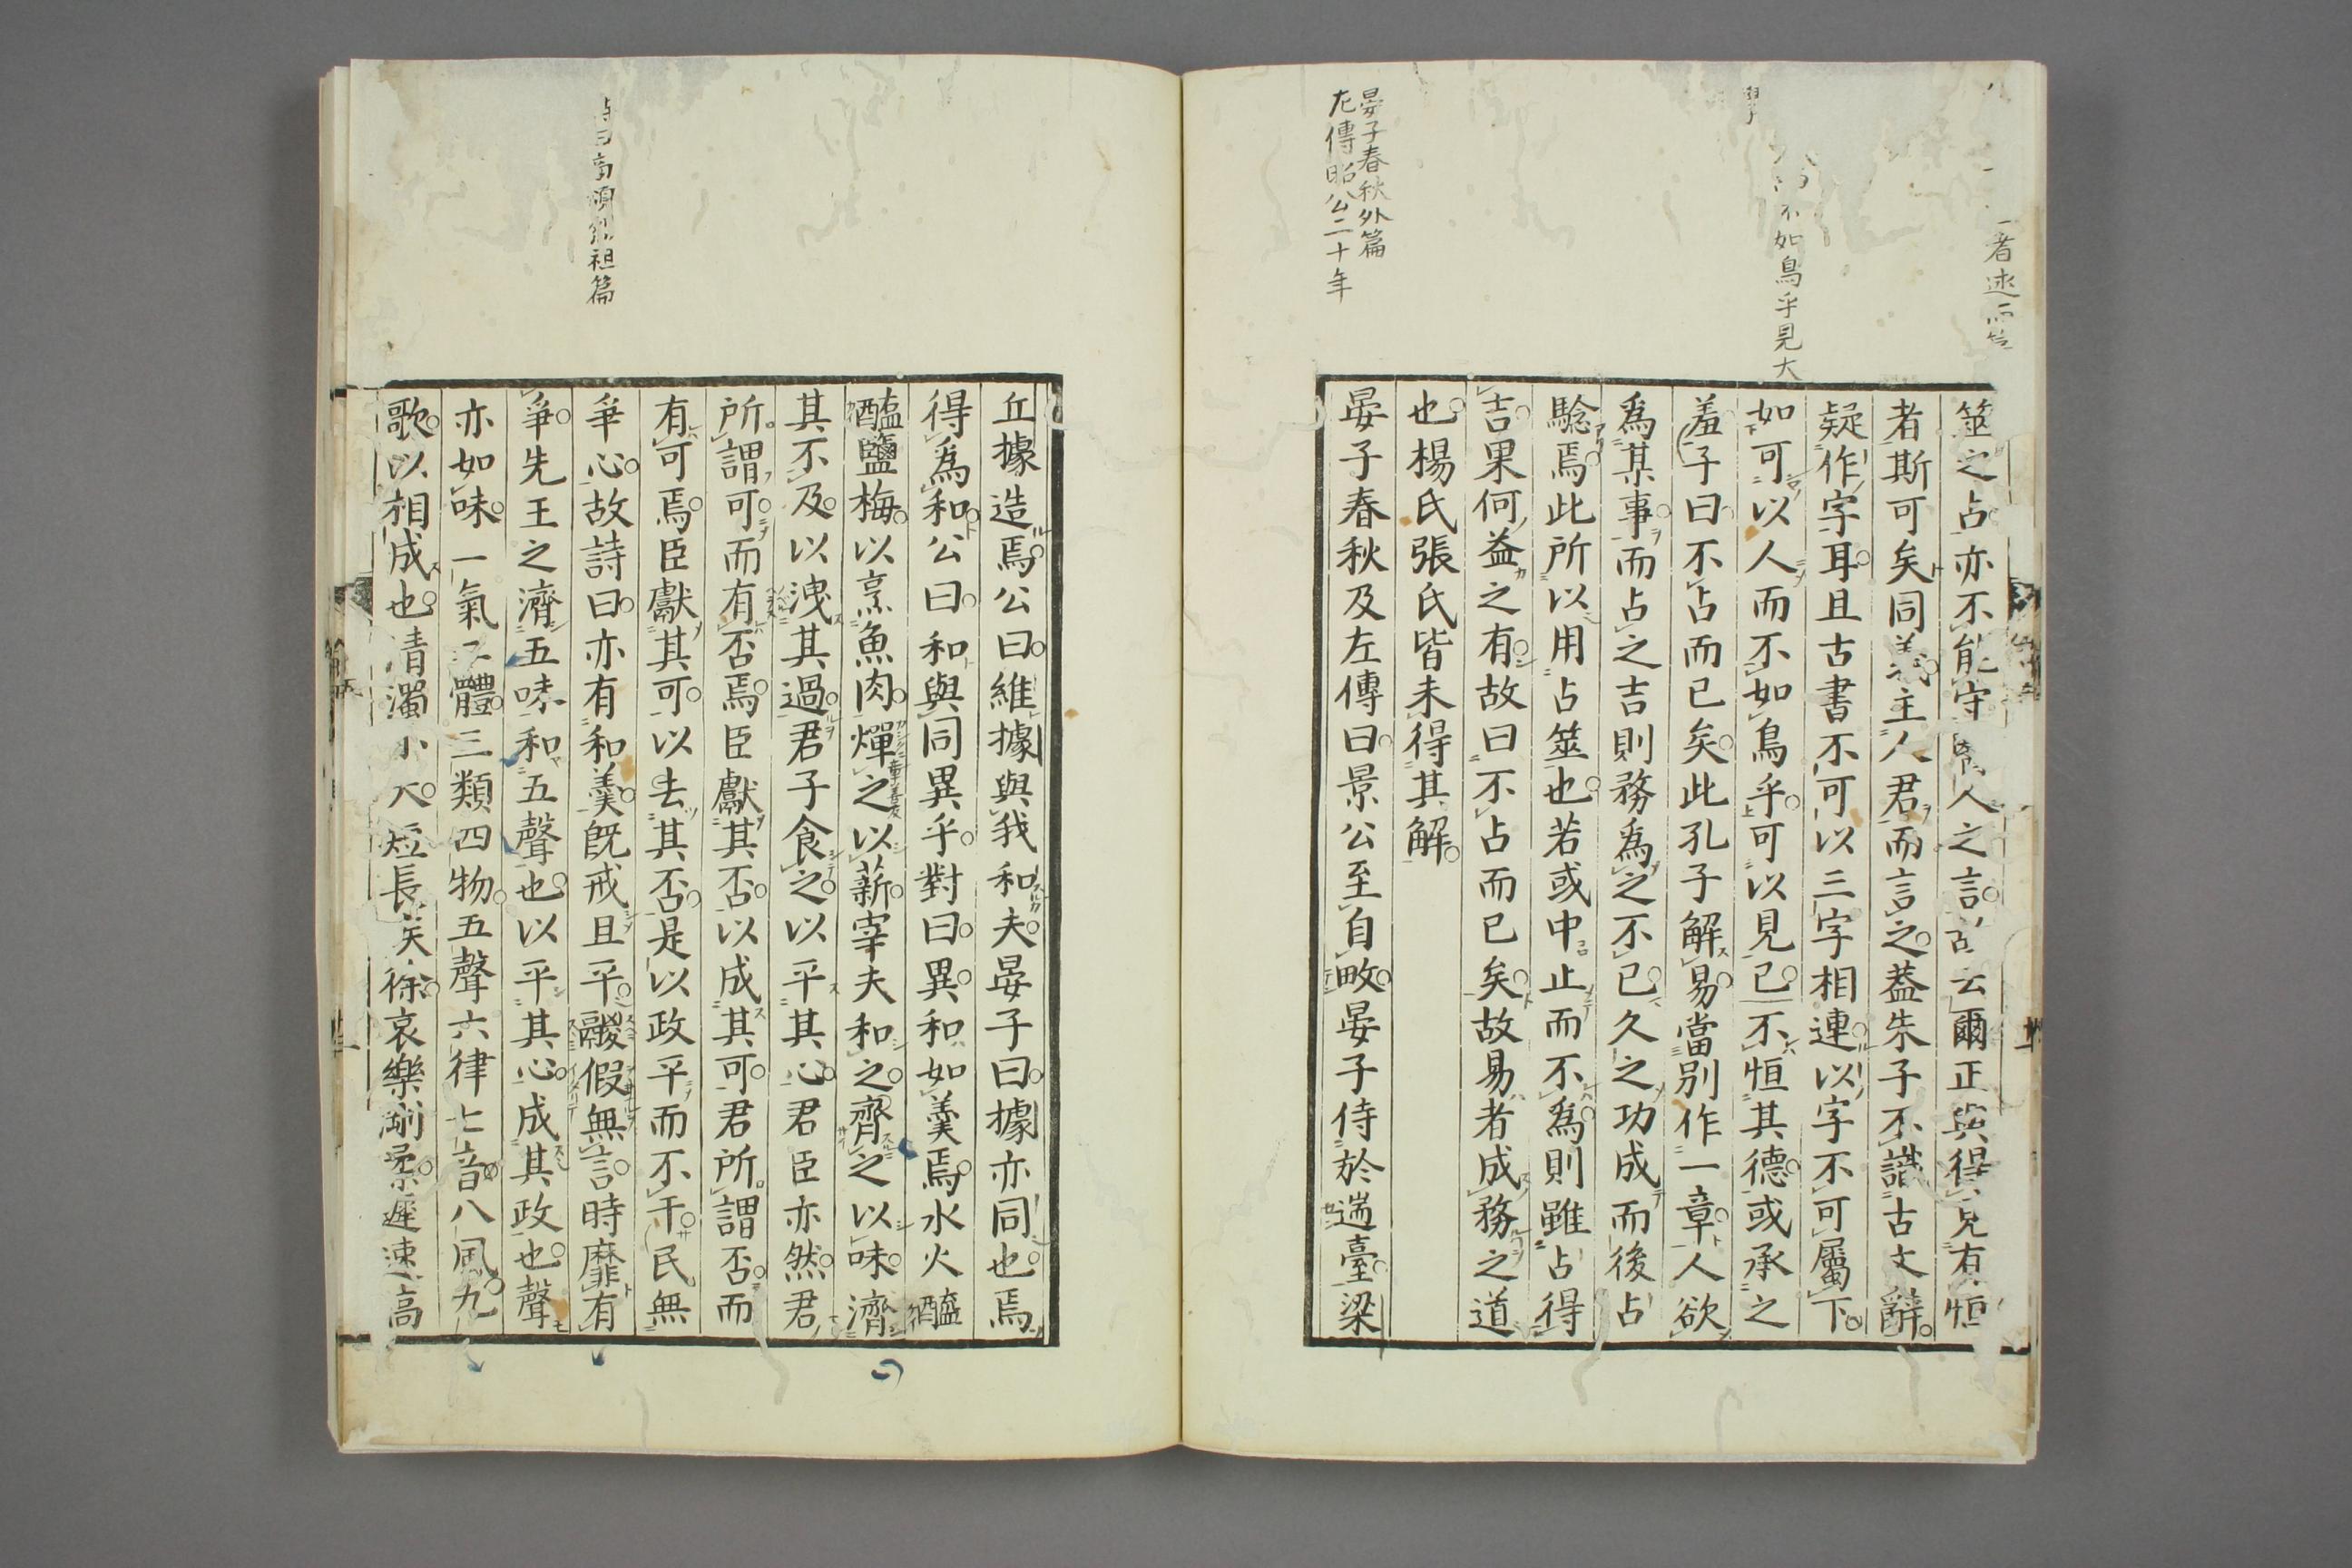 者速
不如鳥乎見大
學
晏子春秋外篇
左傳昭公二十年
筮之占亦不能守人之言云爾正與得見有恒
者斯可矣同義主人君而言之蓋朱子不識古文辭
疑作字耳且古書不可以三字相連以字不可屬下
如可以人而不如鳥乎可以見已不恒其德或承之
羞子曰不占而已矣此孔子解易當別作一章人欲
爲某事而占之吉則務爲之不已久之功成而後占
騐焉此所以用占筮也若或中止而不爲則雖占得
吉果何益之有故曰不占而已矣故易者成務之道
也楊氏張氏皆未得其解
晏子春秋及左傳曰景公至自畋晏子侍於遄臺梁
丘據造焉公曰維據與我和夫晏子曰據亦同也焉
得爲和公曰和與同異乎對曰異和如羹焉水火醯
醢鹽梅以烹魚肉燀之以薪宰夫和之齊之以味濟
其不及以洩其過君子食之以平其心君臣亦然君
所謂可而有否焉臣獻其否以成其可君所謂否而
有可焉臣獻其可以去其否是以政平而不干民無
爭心故詩曰亦有和羹既戒且平鬷假無言時靡有
爭先王之濟五味和五聲也以平其心成其政也聲
亦如味一氣二體三類四物五聲六律七音八風九
歌以相成也清濁小大短長疾徐哀樂剛柔遲速高
詩曰商頌烈祖篇